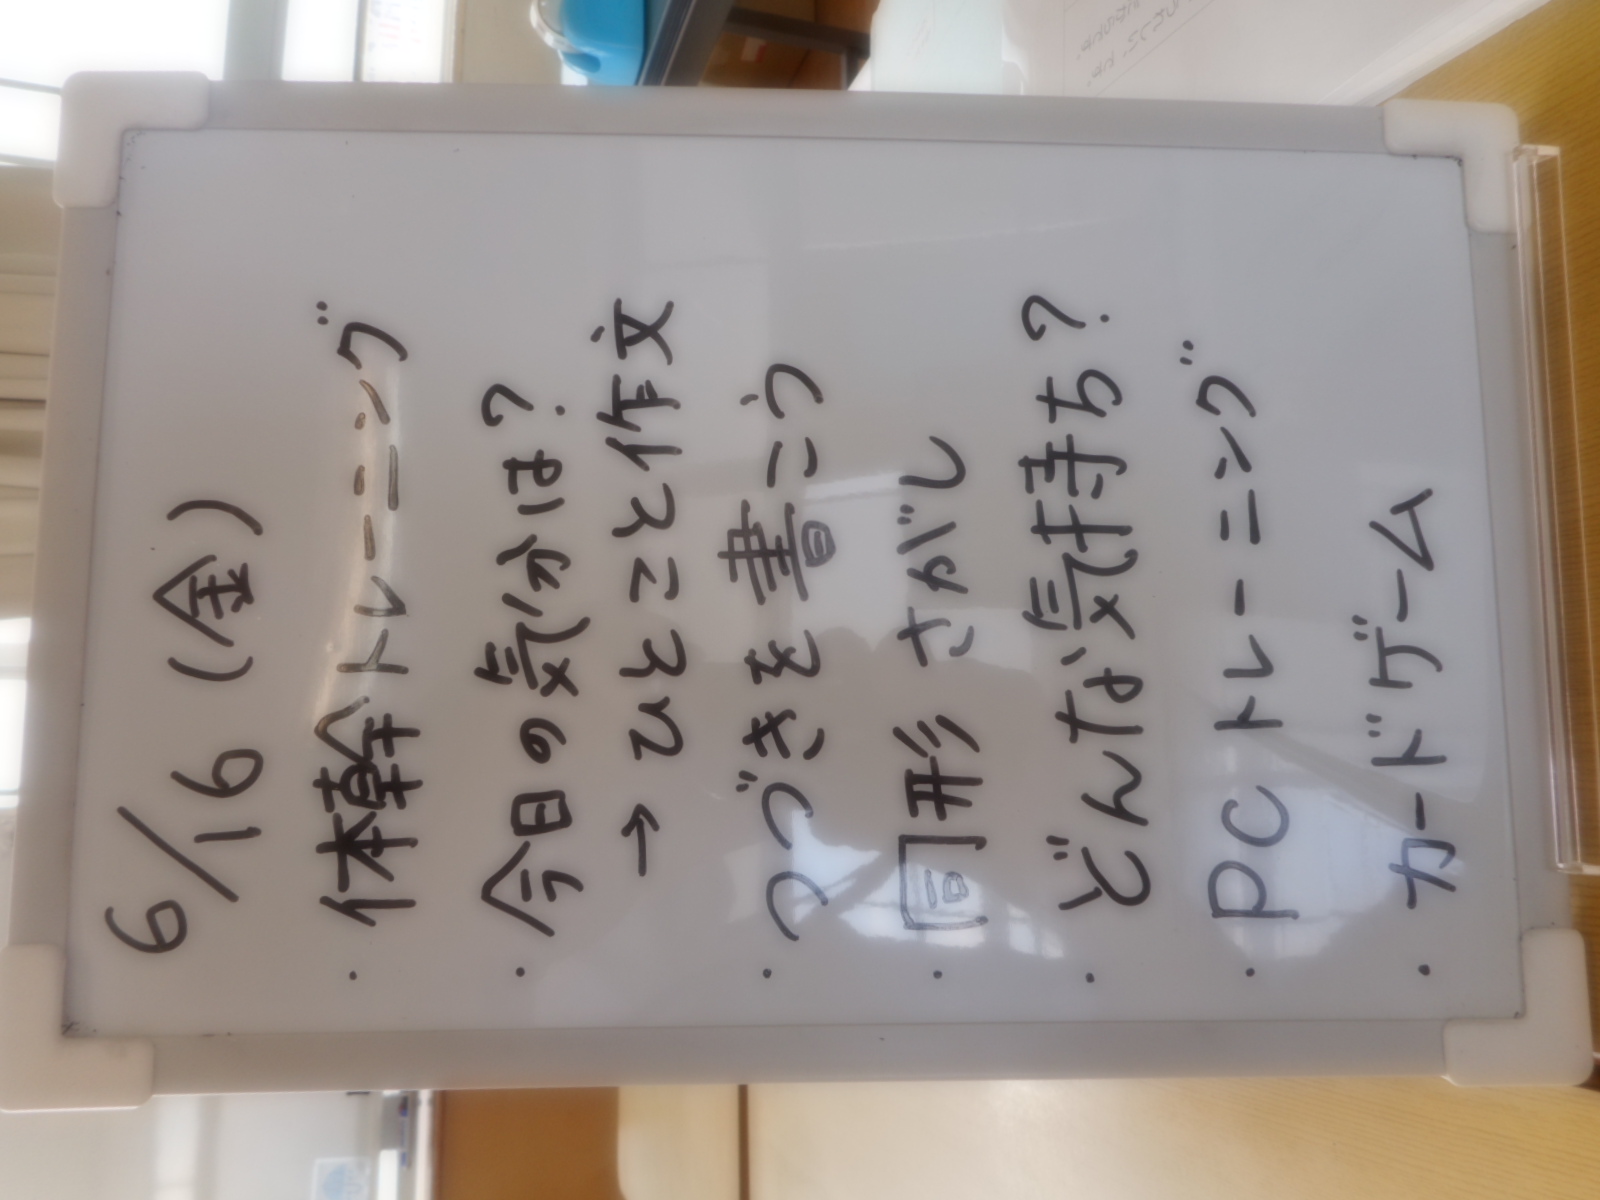 6/16 (金)
・体幹トレーニング
・今日の気分は?
→ひとこと作文
・つづきを書こう
・同形さがし
・どんな気持ち?
・PCトレーニング
・カードゲーム